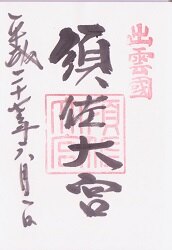 出雲國
須佐大宮
平成二十年月一日